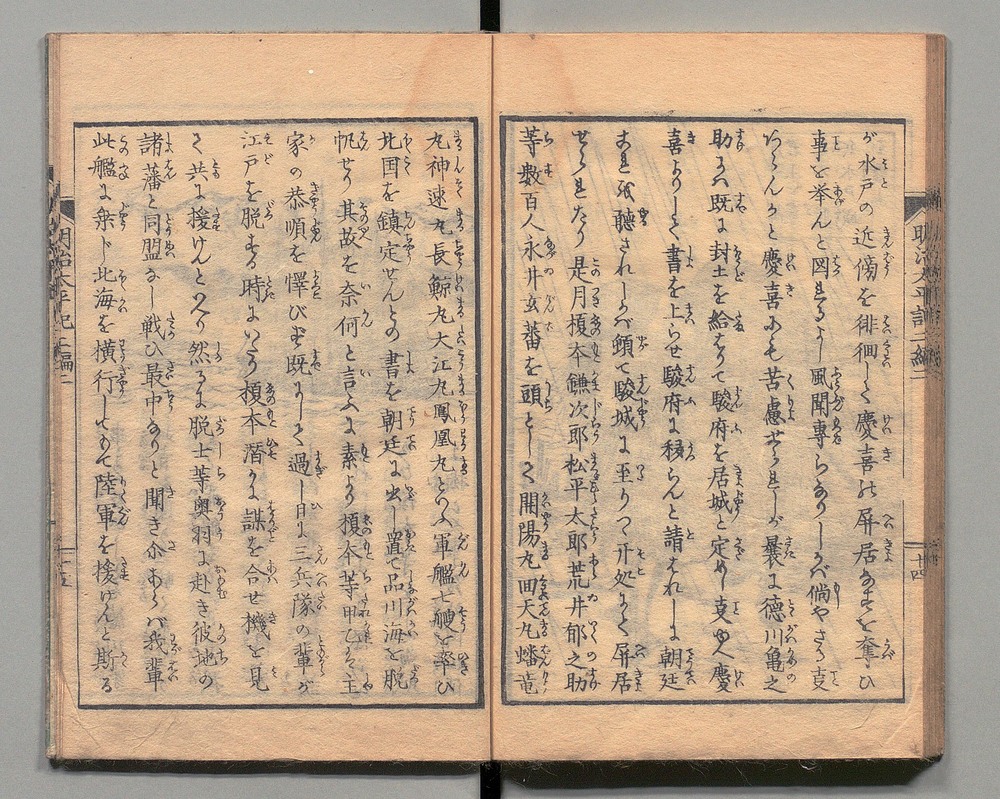 が水戸の近傍を徘徊し慶喜の屏居なすを奪ひ
事を挙んと図るよし風聞専らなりしかバ倘やさる支
あらんかと慶喜にも苦慮せられしが曩に徳川亀之
助かハ既に封土を給はりて駿府を居城と定め支ゆへ慶
喜よりして書を上らせ駿府に移らんと請はれしに朝廷
まれを聴されしかバ頓て駿城に至りつ下処にて屏居
せられたり是月榎本鎌次郎松平太郎荒井郁之助
等数百人永井玄蕃を頭として開陽丸回天丸蟠竜
丸神速丸長鯨丸大江丸鳳凰丸といふ軍艦七艘を率ひ
北国を鎮定せんとの書を朝廷に出し置て品川海を脱
帆せり其故を奈何と言ふに素より榎本等甲乙が主
家の恭順を懌びず既にして過し日に三兵隊の輩が
江戸を脱する時にいたり榎本潜かに謀を合せ機を見
て共に援けんといへり然るに脱士等奥羽に赴き彼地の
諸藩と同盟なし戦ひ最中なりと聞き尓あらバ我輩
此艦に乗じ北海を横行しもて陸軍を援けんと斯る
明治太平記二編二
十四
明治太平記二編二
十五